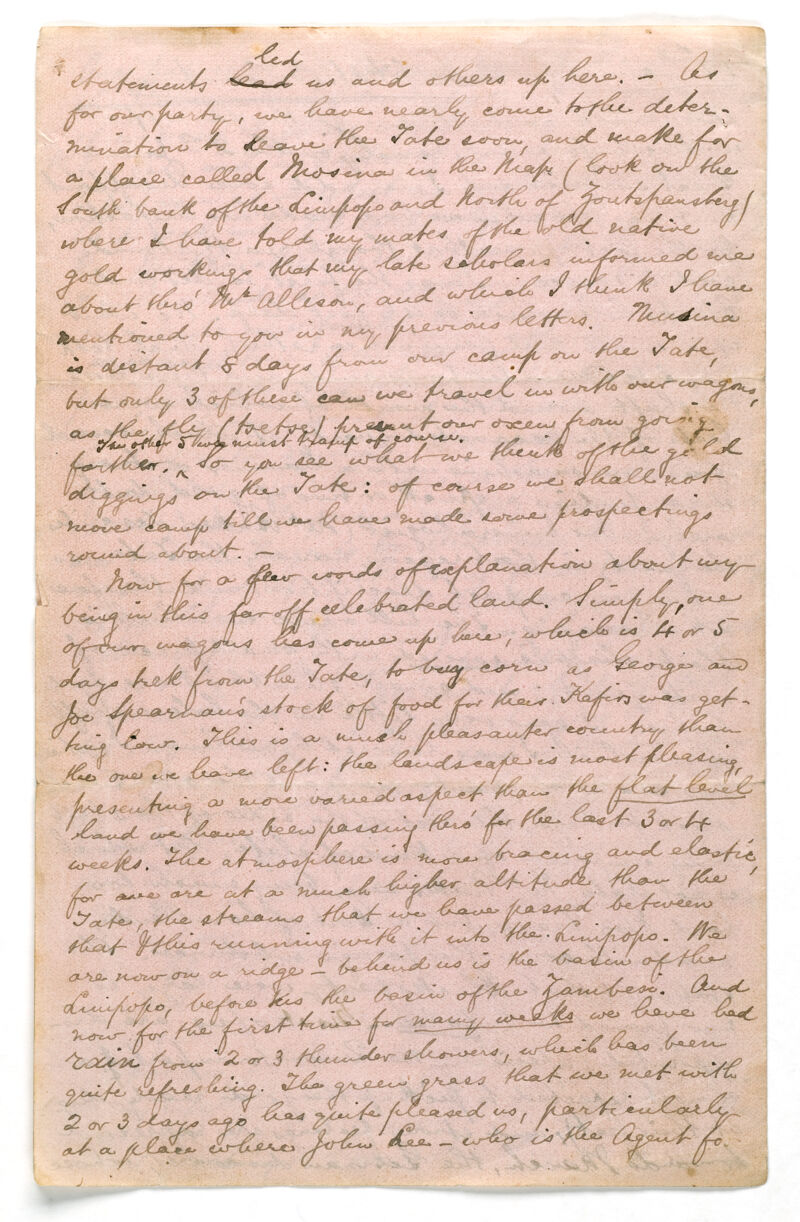 led
statements lead us and others up here. – As
for our party, we have nearly come to the deter-
mination to leave the Tate soon, and make for
a place called Mosina in the Map (look on the
South bank of the Limpopo and North of Zoutspansberg)
where I have told my mates of the old native
gold workings that my late scholars informed me
about thro' Mr Allison, and which I think I have
mentioned to you in my previous letters. Musina
is distant 8 days from our camp on the Tate,
but only 3 of these can we travel in with our wagons,
as the fly (tsetse) prevent our oxen from going
The other 5 we must tramp of course.
farther. ^ So you see what we think of the gold
diggings on the Tate: of course we shall not
move camp till we have made some prospectings
round about. –
Now for a few words of explanation about my
being in this far off celebrated land. Simply, one
of our wagons has come up here, which is 4 or 5
days trek from the Tate, to buy corn as George and
Joe Spearman's stock of food for their Kafirs was get-
ting low. This is a much pleasanter country than
the one we have left: the landscape is most pleasing,
presenting a more varied aspect than the flat level
land we have been passing thro' for the last 3 or 4
weeks. The atmosphere is more bracing and elastic,
for we are at a much higher altitude than the
Tate, the streams that we have passed between
that & this running with it into the Limpopo. We
are now on a ridge – behind us is the basin of the
Limpopo, before us the basin of the Zambesi. And
now for the first time for many weeks we have had
rain from 2 or 3 thunder showers, which has been
quite refreshing. The green grass that we met with
2 or 3 days ago has quite pleased us, particularly
at a place where John Lee – who is the Agent fo